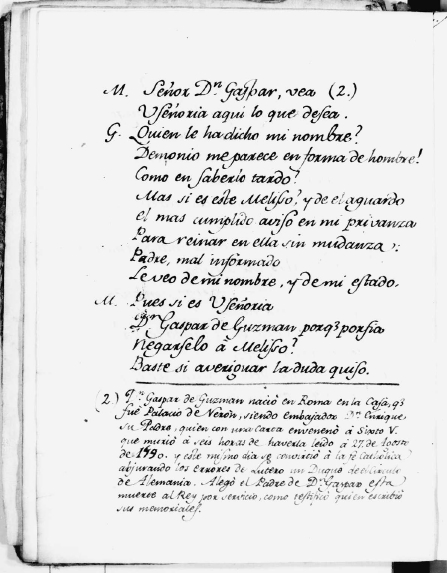 M. Señor Dn Gaspar, vea (2.)
Vseñoria aqui lo que desea.
G. Quien le ha dicho mi nombre?
Demonio me parece en forma de hombre!
Como en saberlo tardo?
Mas si es este Melisso, y de el aguardo
el mas cumplido aviso en mi privanza
Para reinar en ella sin mudanza:
Padre, mal informado
Le veo de mi nombre, y de mi estado.
M. Pues si es Vseñoria
Dn Gaspar de Guzman porq̃ porfia
Negarselo â Melisso?
Baste si averiguar la duda quiso.
(2.) Dn Gaspar de Guzman naciò en Roma en la Casa, q̃
fuè Palacio de Neròn, siendo embajador Dn Enrique
su Padre, quien con una carta envenenò â Sixto V.
que muriò â seis horas de haverla leido â 27 de Agosto
de 1590. y este mismo dia se convirtiò â la fè Catholica
abjurando los errores de Lutero un Duque de el Circulo
de Alemania. Alegò el Padre de Dn Gaspar esta
muerte al Rey por servicio, como testificò quien escribiò
sus memoriales.